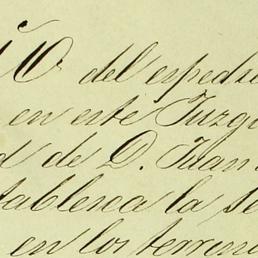 del espedie
en este Juzg
d de D. Juan
tablesca la se
en los terreno